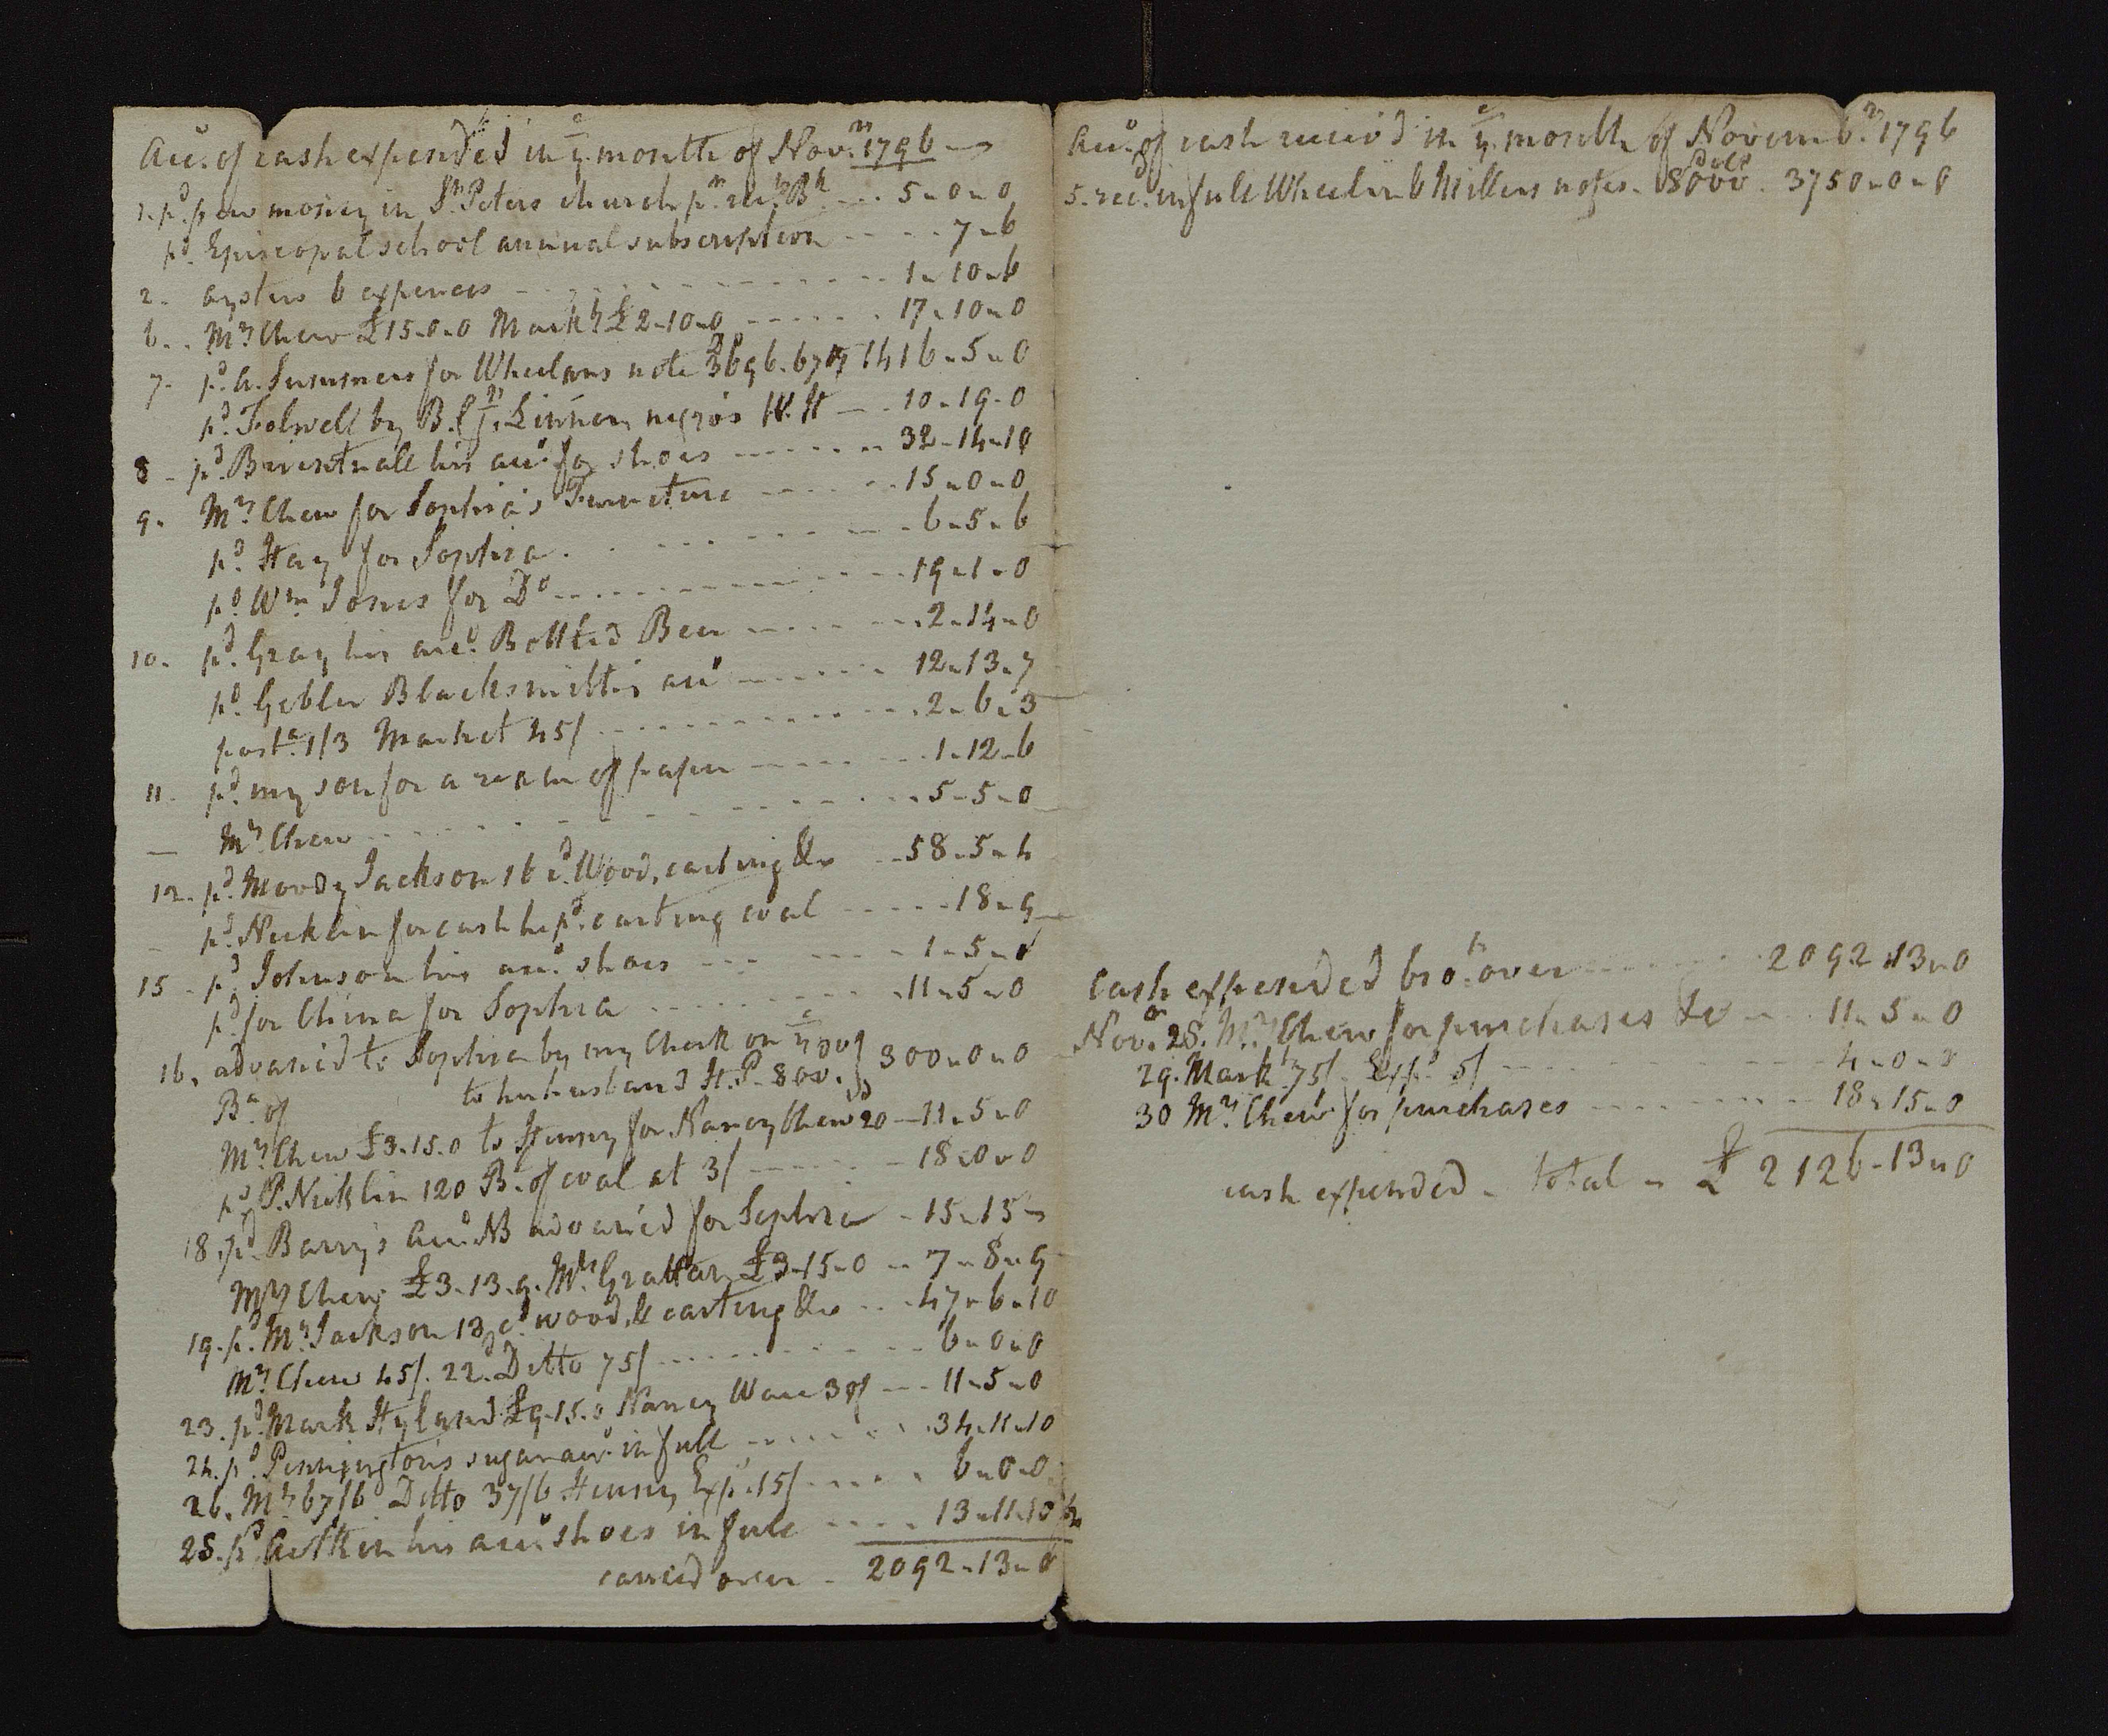 Acc.o of cash expended in ye. month of Nov.r 1796
1. p.d pew money in S.t Peters church p.r rec.t B.k 5-0-0
p.d Episcopal school annual subscription 7-6
2. oysters & expences 1-10-6
6. Mrs Chew £15-0-0 Mark.t £2-10-0 17-10-0
7. p.d A. Summers for Wheelans note 1416-5-0
p.d Folwell by B. C Jr. Linnen negro's 10-19-0
8 p.d Birentnall his acc.o for shoes 32-14-10
9. Mrs Chew for Sophia's Furneture 15-0-0
p.d Hay for Sophia 6-5-6
p.d Wm. Jones for Do 19-1-0
10. p.d Gray his acc.o Bottled Beer 2-14-0
p.d Gibler Blacksmith's acc.o 12-13-7
posta. 1/3 Market 45/ 2-6-3
11. p.d my son for a ream of paper 1-12-6
Mrs Chew 5-5-0
12. p.d Moody Jackson 16 c.d Wood, carting &c 58-5-4
p.d Nicklin for cash he p.d carting coal 18-9
15 p.d Johnson his acc.o shoes 1-5-0
p.d for China for Sophia 11-5-0
16. advanc'd to Sophia by my Check on ye
B.a of to her husband H. P. 800. } 300-0-0
Mrs Chew £3-15-0 to Henny for Nancy Chew 20 11-5-0
p.d P. Nicklin 120 B. of coal at 3/ 18-0-0
18. p.d Barry's Acc.o NB advanc'd for Sophia 15-15-
Mrs Chew £3-13-9. Mr. Grattan £3-15-0 7-8-9
19. p.d Mr Jackson 13 c.d wood, & carting &c 47-6-10
Mrs Chew 45/. 22. Ditto 75/ 6-0-0
23. p.d Mark Hyland £9-15-0 Nancy Ware 30/ 11-5-0
24. p.d Pennington's sugar acc.o in full 34-11-10
26. Mrs 67/6 Ditto 37/6 Henny Exp. 15/ 6-0-0
28. p.d Aitkin his acc.o shoes in full 13-11-10
carried over 2092-13-0
Acc.o of cash receiv'd in ye. month of Novemb.r 1796
5. rec.d in full Wheelen & Millers notes. 8000 dols. 3750-0-0
Cash expended bro.t over 2092-13-0
Nov.r 28. Mrs Chew for purchases &c 11-5-0
29. Mark.t 75/ Exp.s 5/ 4-0-0
30 Mrs Chew for purchases 18-15-0
cash expended total £ 2126-13-0